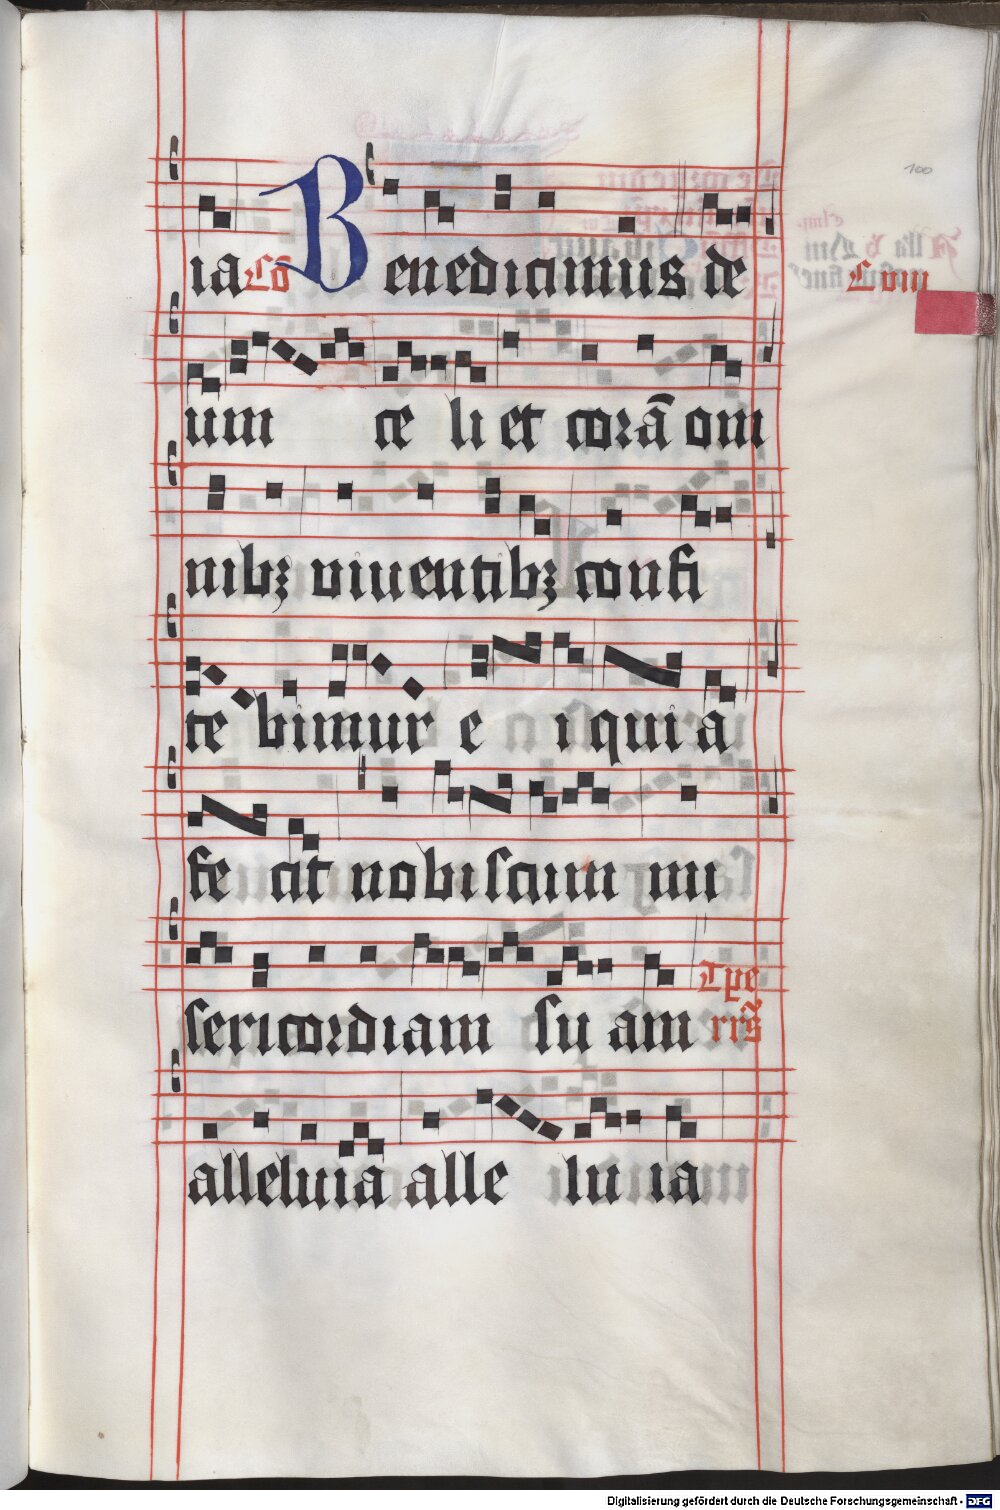 100
ia Cō Benedicimus de
Lviii
um ce li et corā om
nibꝫ viventibꝫ confi
te bimur e i quia
fe cit nobiscum mi
sericordiam su am Tꝑe
rris̄
alleluia alle lu ia
Digitalisierung gefördert durch die Deutsche Forschungsgemeinschaft - DFG